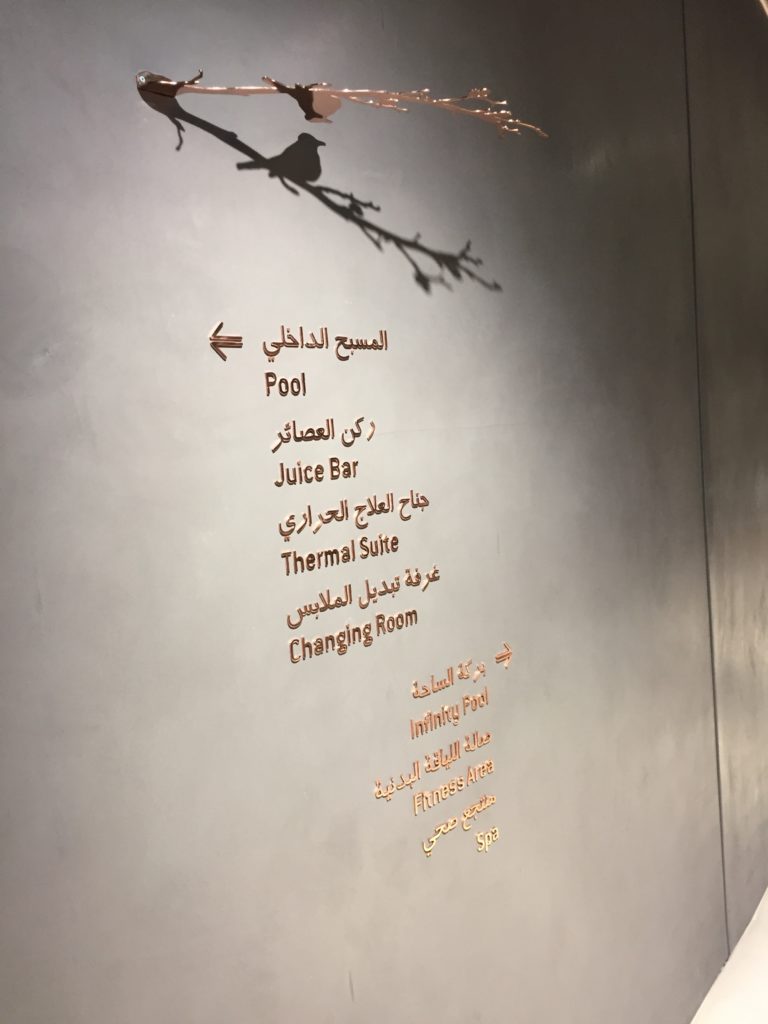 المسبح الداخلي
Pool
ركن العصائر
Juice Bar
جناح العلاج الحراري
Thermal Suite
غرفة تبديل الملابس
Changing Room
بركة الساحة
Infinity Pool
صالة اللياقة البدنية
Fitness Area
منتجع صحي
Spa